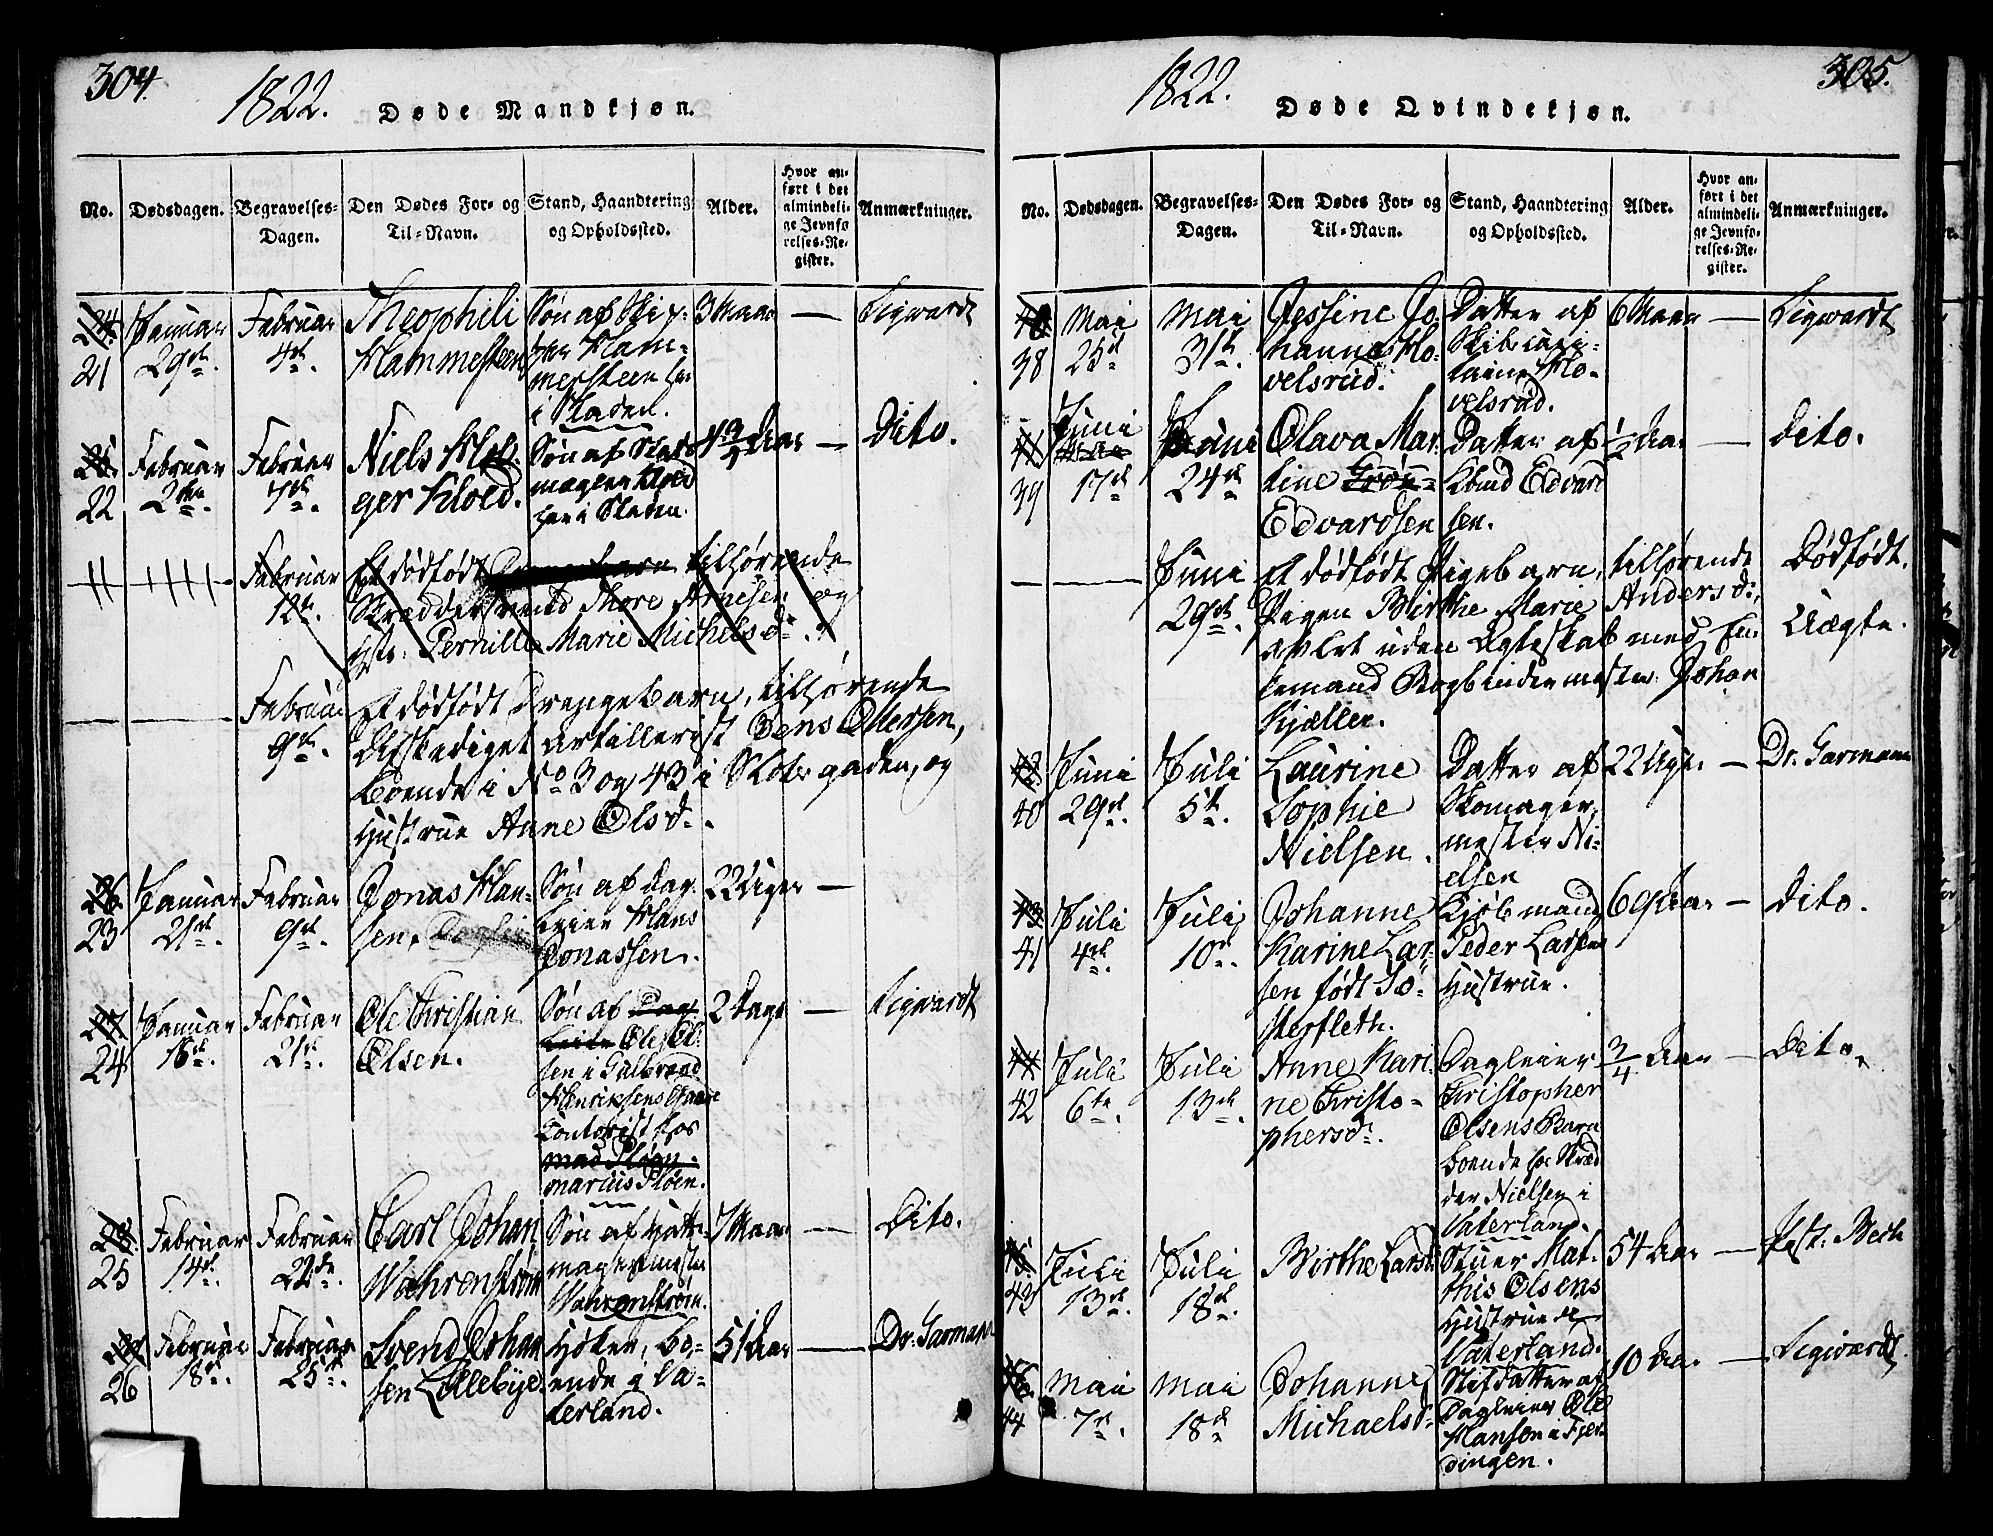 304.
1822. Døde Mandkjøn.
No. Dødsdagen. Begravelses-Dagen. Den Dødes For- og Til-Navn. Stand, Haandtering og Opholdssted. Alder. Hvor anført i det almindelige Jevnførelses-Register. Anmærkninger.
21 Januar 29de Februar 4de Theophili Hammersteen Søn af Skipper Hammersteen her i Staden. 3 Maan — Sigwardt
22 Februar 2den Februar 7de Niels Holger Kloed. Søn af Kloed her i Staden. Aar — Dito.
Februar 12te Et dødfødt tilhørende
Skræddersvend Thore Arnesen og
Pernille Marie Michelsd.
Februar 9de Et dødfødt Drengebarn, tilhørende
Afskediget Artillerist Jens Ottersen,
boende i No 3 og 43 i gaden, og
Hustrue Anne Olsd.
26 23 Januar 21de Februar 9de Jonas Hansen. Søn af Dagleier Hans Jonassen. 22 Uger —
24 Januar 16de Februar 21de Ole Christian Olsen. Søn af Dagleier Ole Olsen i Gulbrand Henriksens Gaard Contorist hos
mad Pløen
marius Pløen. 2 Dage — Sigwardt
25 Februar 14de Februar 22de Carl Johan Wahrenstrøm Søn af Hattemagermester Wahrenstrøm. 7 Maan — Dito.
26 Februar 18de Februar 25de Svend Johansen Lillebye. Høker, boende i Vaterland. 51 Aar — Dr. Garmann
305.
1822. Døde Qvindekjøn.
No. Dødsdagen. Begravelses-Dagen. Den Dødes For- og Til-Navn. Stand, Haandtering og Opholdssted. Alder. Hvor anført i det almindelige Jevnførelses-Register. Anmærkninger.
38 Mai 25de Mai 31te Jessine Johanne Hovelsrud. Datter af Hovelsrud. 6 Maan — Sigwardt
41 39 Juni 17de Juni 24de Olava Martine Edvardsen Datter af Edvardsen. ½ Aar — Dito.
Juni 29de Et dødfødt Pigebarn, tilhørende
Pigen Birthe Marie Andersd.,
avlet uden Ægteskab med
Bogbindermester Johan
Kjeller. Dødfødt. Uægte.
40 Juni 29de Juli 5te Laurine Sophie Nielsen. Datter af Skomagermester Nielsen 22 Uger — Dr. Garmann
43 41 Juli 4de Juli 10de Johanne Karine Larsen født Kjøbmand Peder Larsens Hustrue. 69 Aar — Dito.
44 42 Juli 6te Juli 13de Anne Karine Christophersd. Dagleier Christopher Olsens Barn boende hos Skræder Nielsen i Vaterland. ¾ Aar — Dito.
45 43 Juli 13de Juli 18de Birthe Larsd. Stuer Mathis Olsens Hustrue Vaterland. 54 Aar — Pest: Bech
44 Mai 7de Mai 18de Johanne Michaelsd. Stifdatter af Dagleier Ole Hansen i Fjerdingen. 10 Aar — Sigwardt.